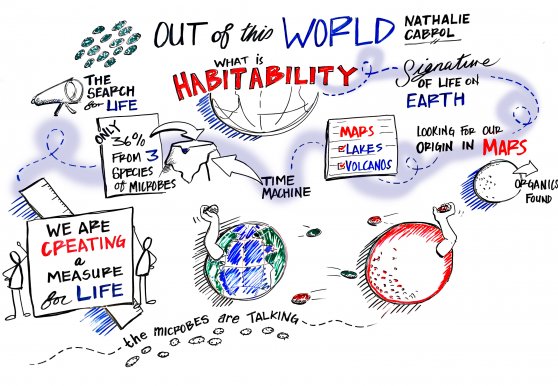 OUT of this WORLD
NATHALIE
CABROL
WHAT is
HABITABILITY
THE
SEARCH
for LIFE
Signature
OF LIFE ON
EARTH
ONLY
36%
FROM 3
SPECIES
of MICROBES
TIME
MACHINE
MAPS
LAKES
VOLCANOS
LOOKING FOR OUR
ORIGIN IN MARS
ORGANICS
FOUND
WE ARE
CREATING
a
MEASURE
for LIFE
the MICROBES are TALKING